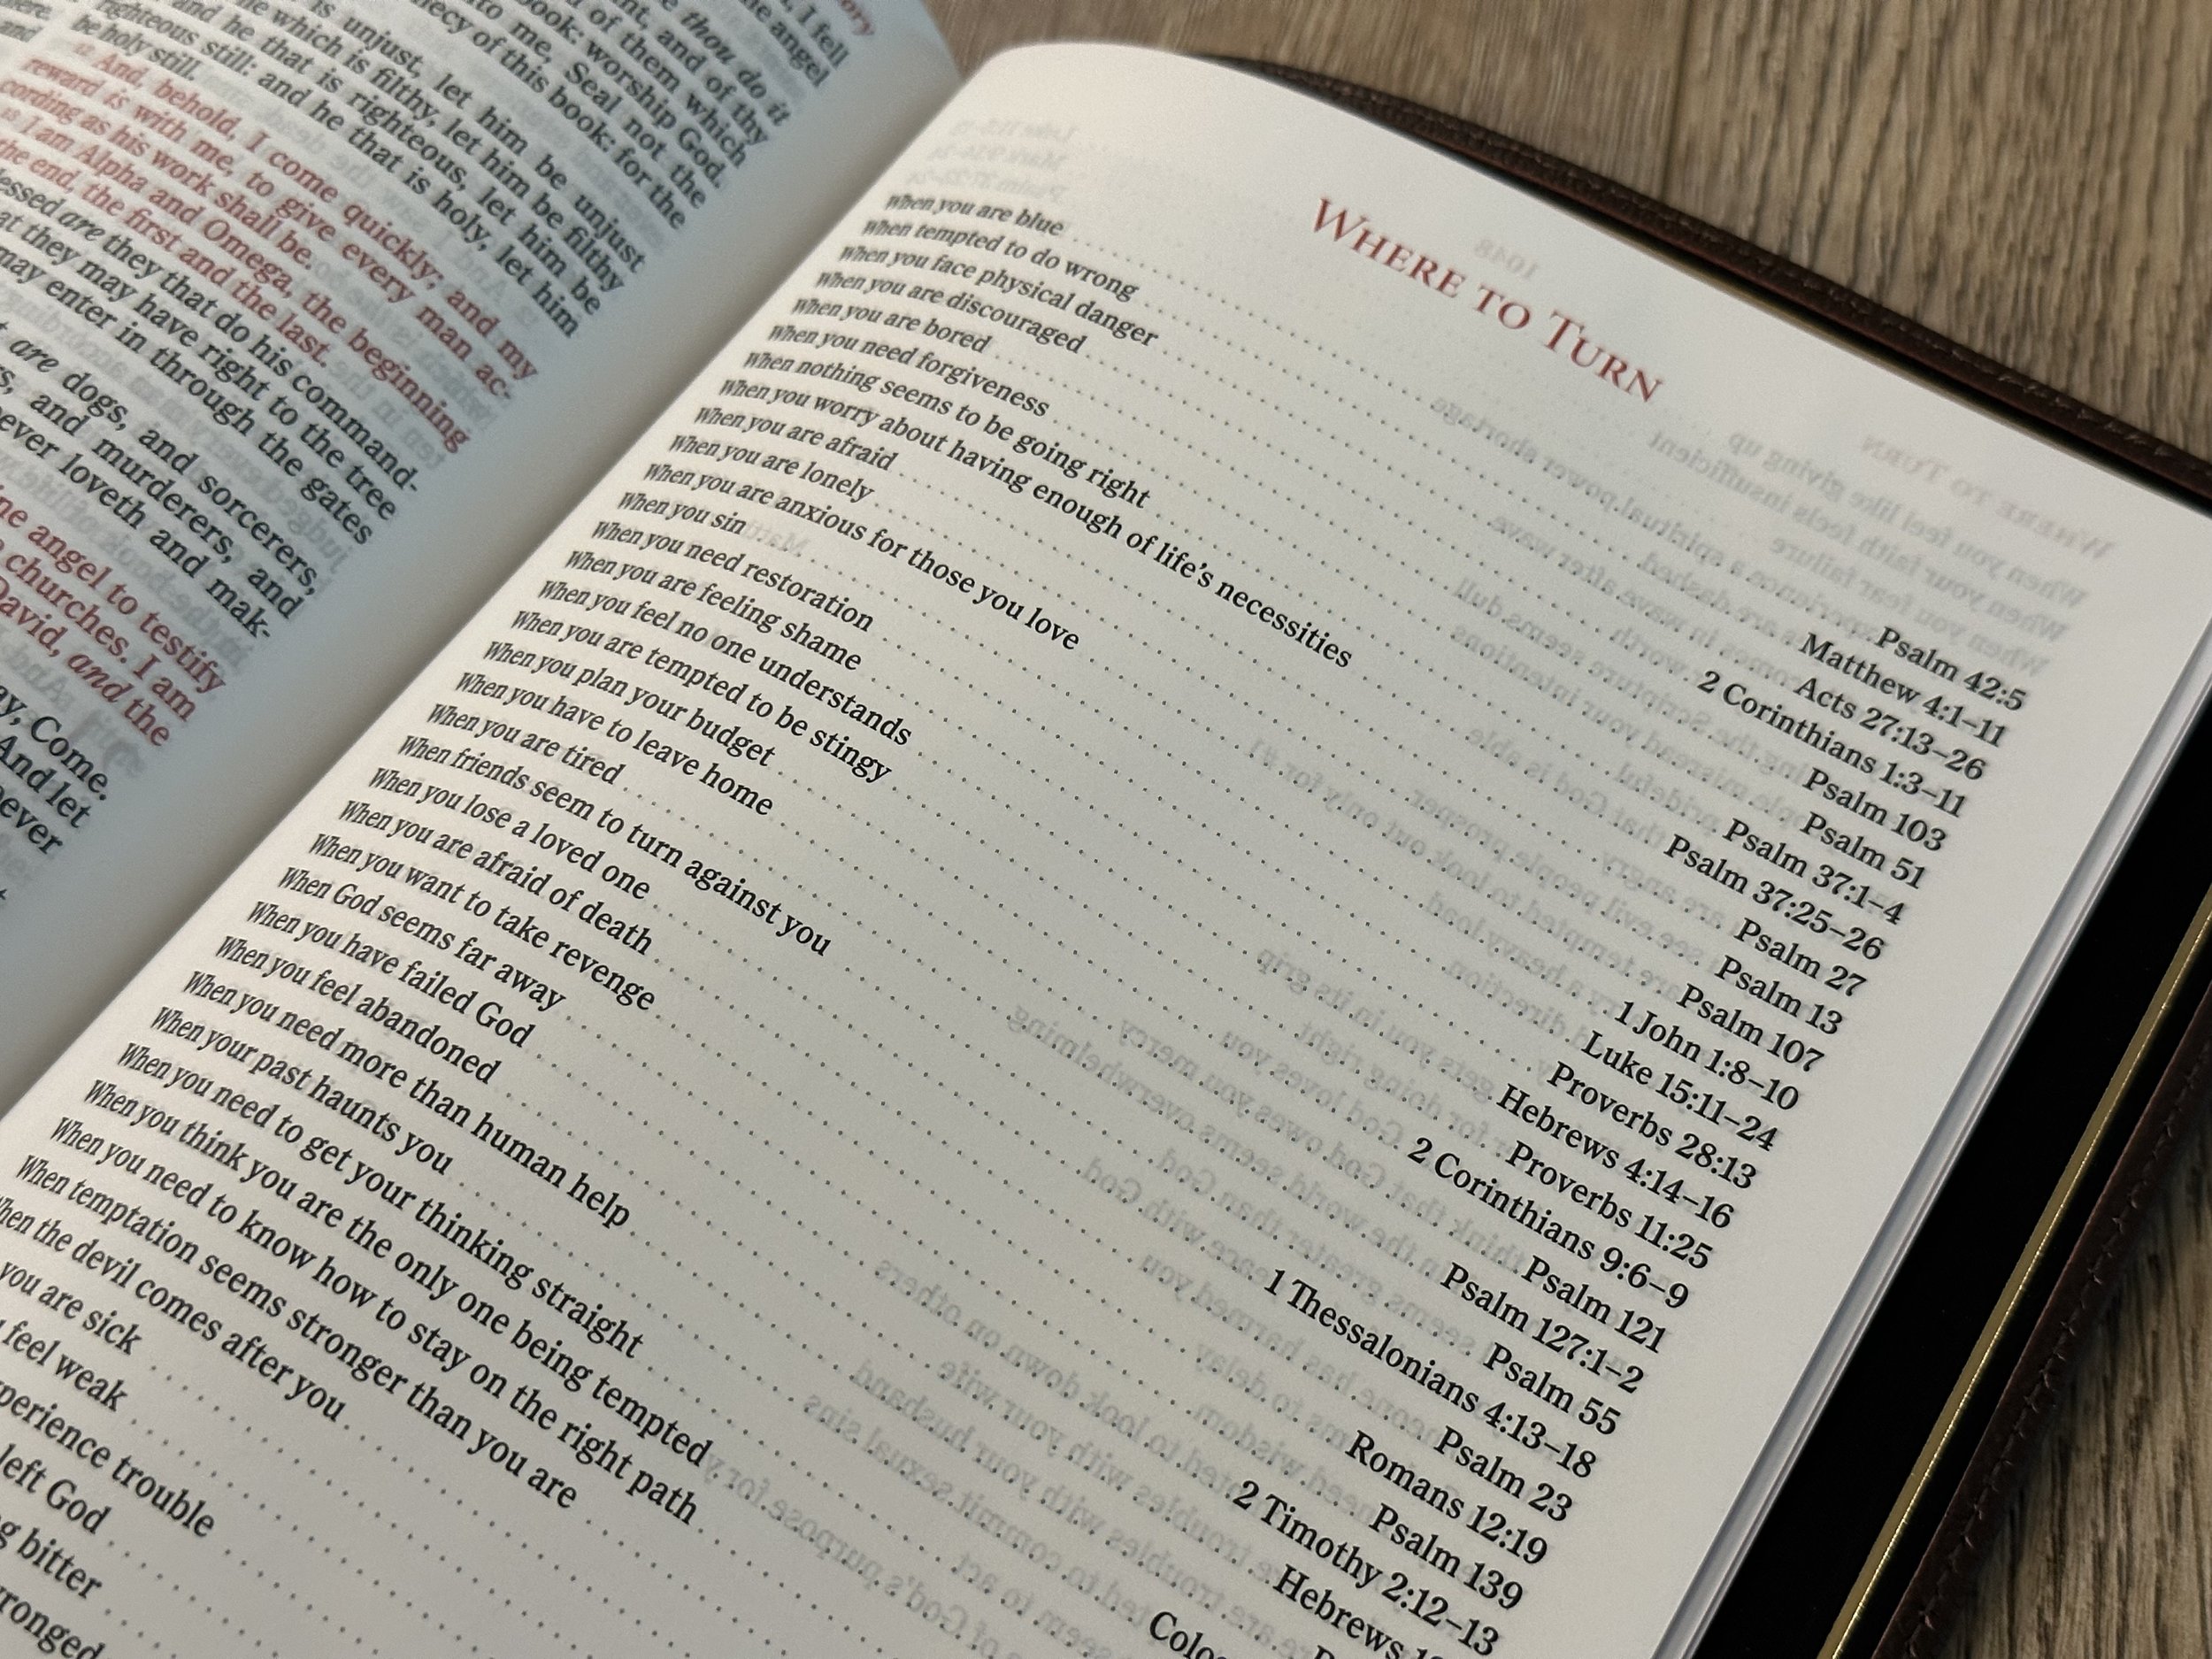 I fell
angel
thou do it
and of thy
of them which
book: worship God.
me, Seal not the
of this book: for the
is unjust, let him be unjust
which is filthy, let him be filthy
and he that is righteous, let him be
righteous still: and he that is holy, let him
be holy still.
And, behold, I come quickly; and my
reward is with me, to give every man ac-
cording as his work shall be.
I am Alpha and Omega, the beginning
the end, the first and the last.
are they that do his command-
they may have right to the tree
may enter in through the gates
are dogs, and sorcerers,
and murderers, and
loveth and mak-
angel to testify
churches. I am
David, and the
Come.
And let
WHERE TO TURN
When you are blue . . . . Psalm 42:5
When tempted to do wrong . . . . Matthew 4:1–11
When you face physical danger . . . . Acts 27:13–26
When you are discouraged . . . . 2 Corinthians 1:3–11
When you are bored . . . . Psalm 103
When you need forgiveness . . . . Psalm 51
When nothing seems to be going right . . . . Psalm 37:1–4
When you worry about having enough of life's necessities . . . . Psalm 37:25–26
When you are afraid . . . . Psalm 27
When you are lonely . . . . Psalm 13
When you are anxious for those you love . . . . Psalm 107
When you sin . . . . 1 John 1:8–10
When you need restoration . . . . Luke 15:11–24
When you are feeling shame . . . . Proverbs 28:13
When you feel no one understands . . . . Hebrews 4:14–16
When you are tempted to be stingy . . . . Proverbs 11:25
When you plan your budget . . . . 2 Corinthians 9:6–9
When you have to leave home . . . . Psalm 121
When you are tired . . . . Psalm 127:1–2
When friends seem to turn against you . . . . Psalm 55
When you lose a loved one . . . . 1 Thessalonians 4:13–18
When you are afraid of death . . . . Psalm 23
When you want to take revenge . . . . Romans 12:19
When God seems far away . . . . Psalm 139
When you have failed God . . . . 2 Timothy 2:12–13
When you feel abandoned . . . . Hebrews
When you need more than human help
When your past haunts you
When you need to get your thinking straight
When you think you are the only one being tempted
When you need to know how to stay on the right path
When temptation seems stronger than you are
When the devil comes after you
you are sick
feel weak
trouble
left God
bitter